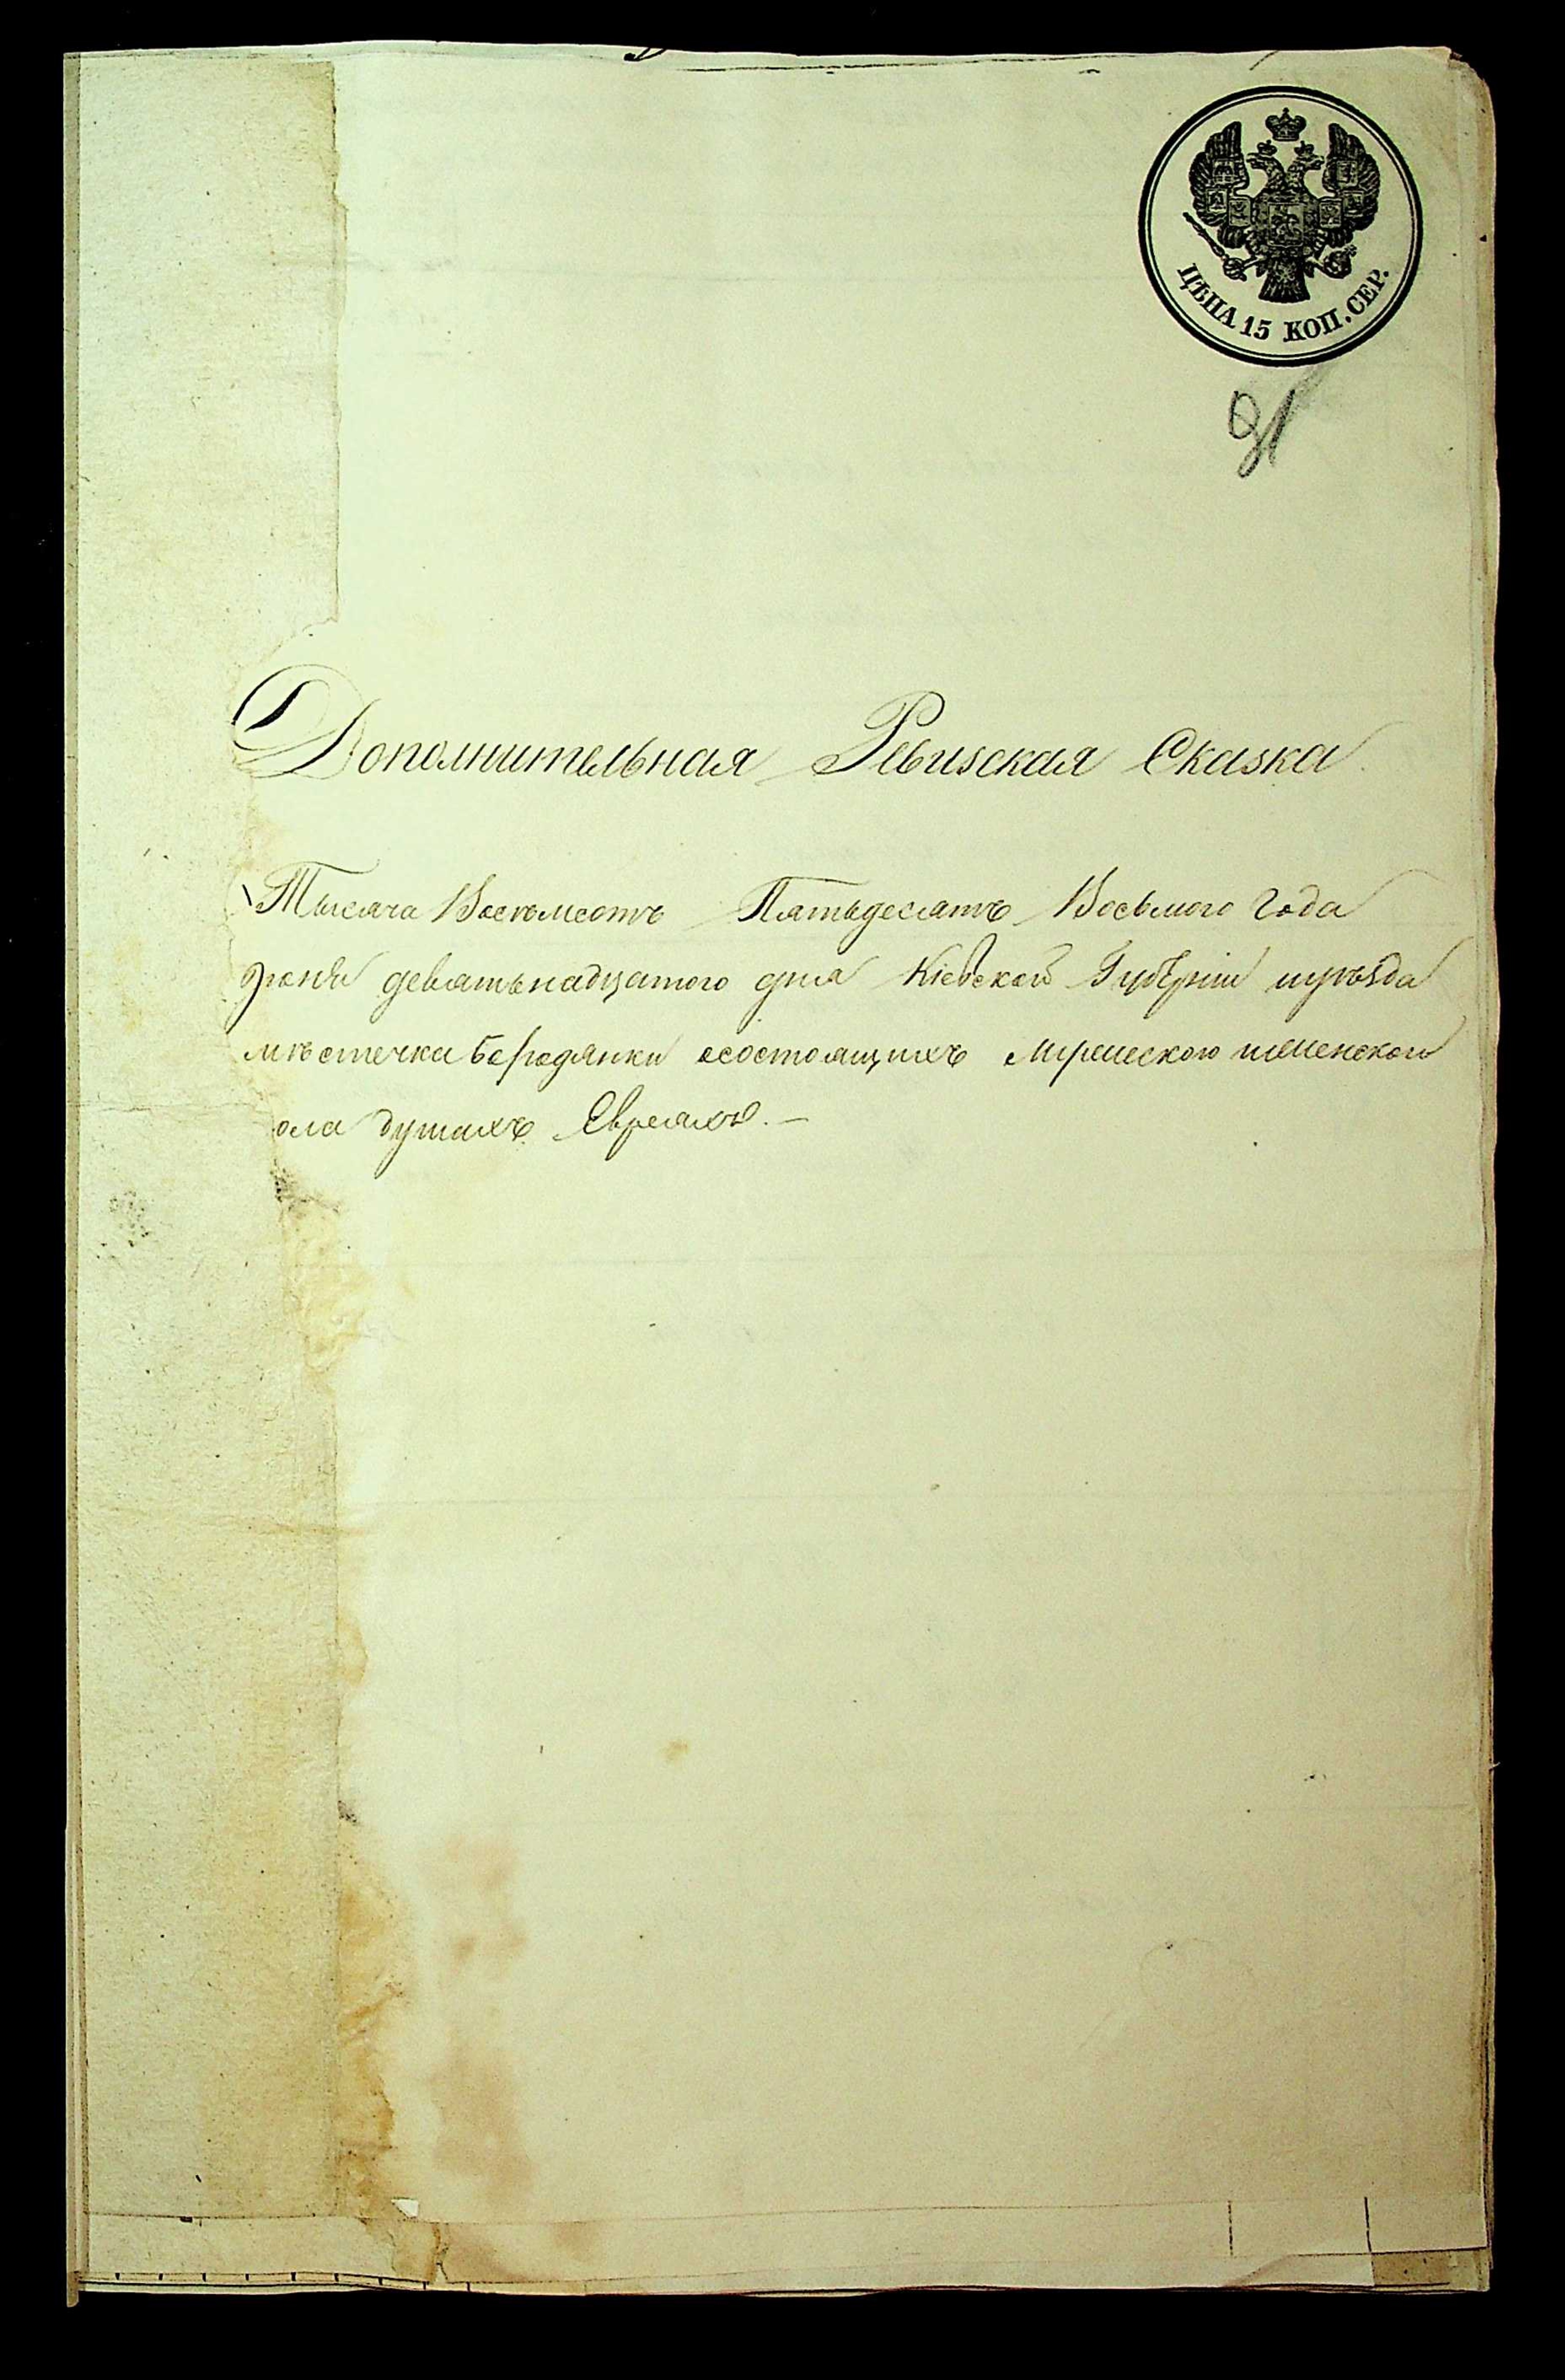 ЦѢНА 15 КОП. СЕР.
91
Дополнительная Ревизская Сказка
Тысяча Восемьсотъ Пятьдесятъ Восьмого Года
девятьнадцатого дня Кіевской Губерніи и уѣзда
мѣстечка Бородянки осостоящихъ Мужескаго и женскаго
ола душахъ Евреяхъ. —